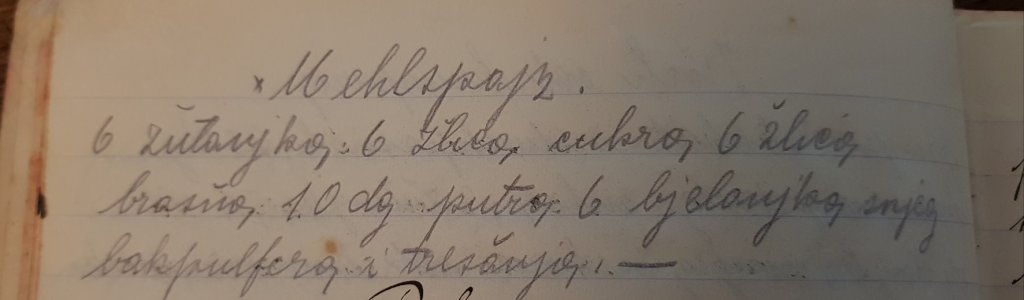 × Mehlspajz.
6 žutanjka, 6 žlica, cukra, 6 žlica,
brašna, 10 dg putra, 6 bjelanjka snjeg
bakpulfera i trešanja, —